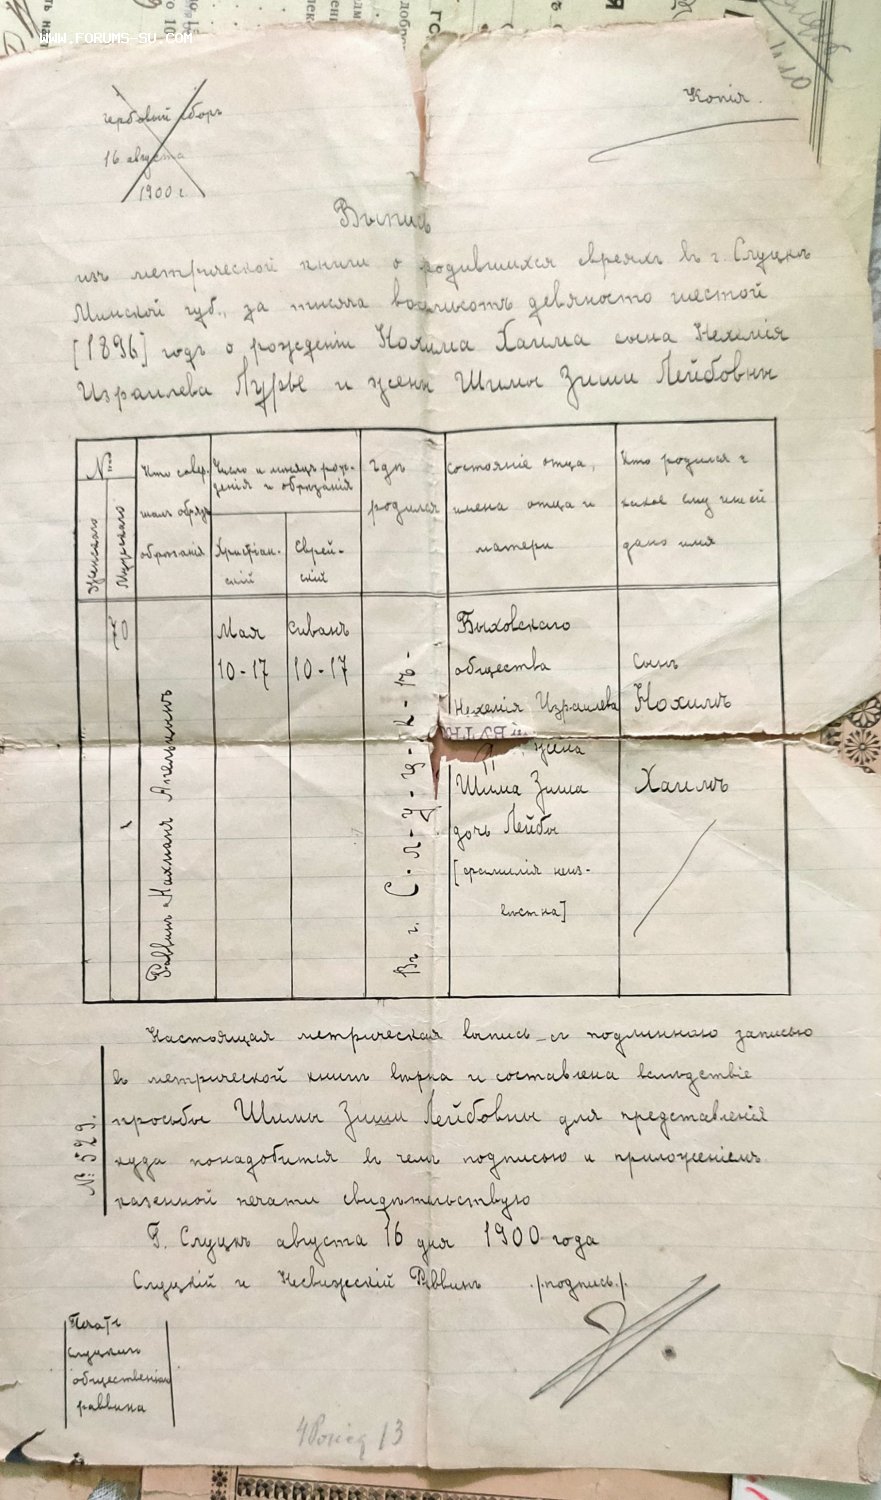 WWW.FORUMS-SU.COM
Копія.
гербовый сборъ
16 августа
1900 г.
Выпись
изъ метрической книги о родившихся евреяхъ въ г. Слуцкѣ
Минской губ., за тысяча восемьсотъ девяносто шестой
[1896] годъ о рожденіи Нохима Хаима сына Нехемія
Израилева Лурье и жены Шимы Зиши Лейбовны
№
Женскаго
Мужскаго
Кто совер-
шалъ обрядъ
обрѣзанія
Число и мѣсяцъ рож-
денія и обрѣзанія
Христіан-
скій
Еврей-
скій
гдѣ
родился
состояніе отца,
имена отца и
матери
Кто родился и
какое ему или ей
дано имя
70
Раввинъ Нахманъ Апельцинъ
Мая
10-17
Сиванъ
10-17
Въ г. С-л-у-ц-к-ѣ-
Быховскаго
общества
Нехемія Израилева
жена
Шима Зиша
дочь Лейбы
[фамилія неиз-
вѣстна]
сынъ
Нохимъ
Хаимъ
Настоящая метрическая выпись съ подлинною записью
въ метрической книгѣ вѣрна и составлена вслѣдствіе
просьбы Шимы Зиши Лейбовны для представленія
куда понадобится въ чемъ подписью и приложеніемъ
казенной печати свидѣтельствую
№ 529.
Г. Слуцкъ августа 16 дня 1900 года
Слуцкій и Несвижскій Раввинъ /подпись/.
Печать
слуцкаго
общественнаго
раввина
13